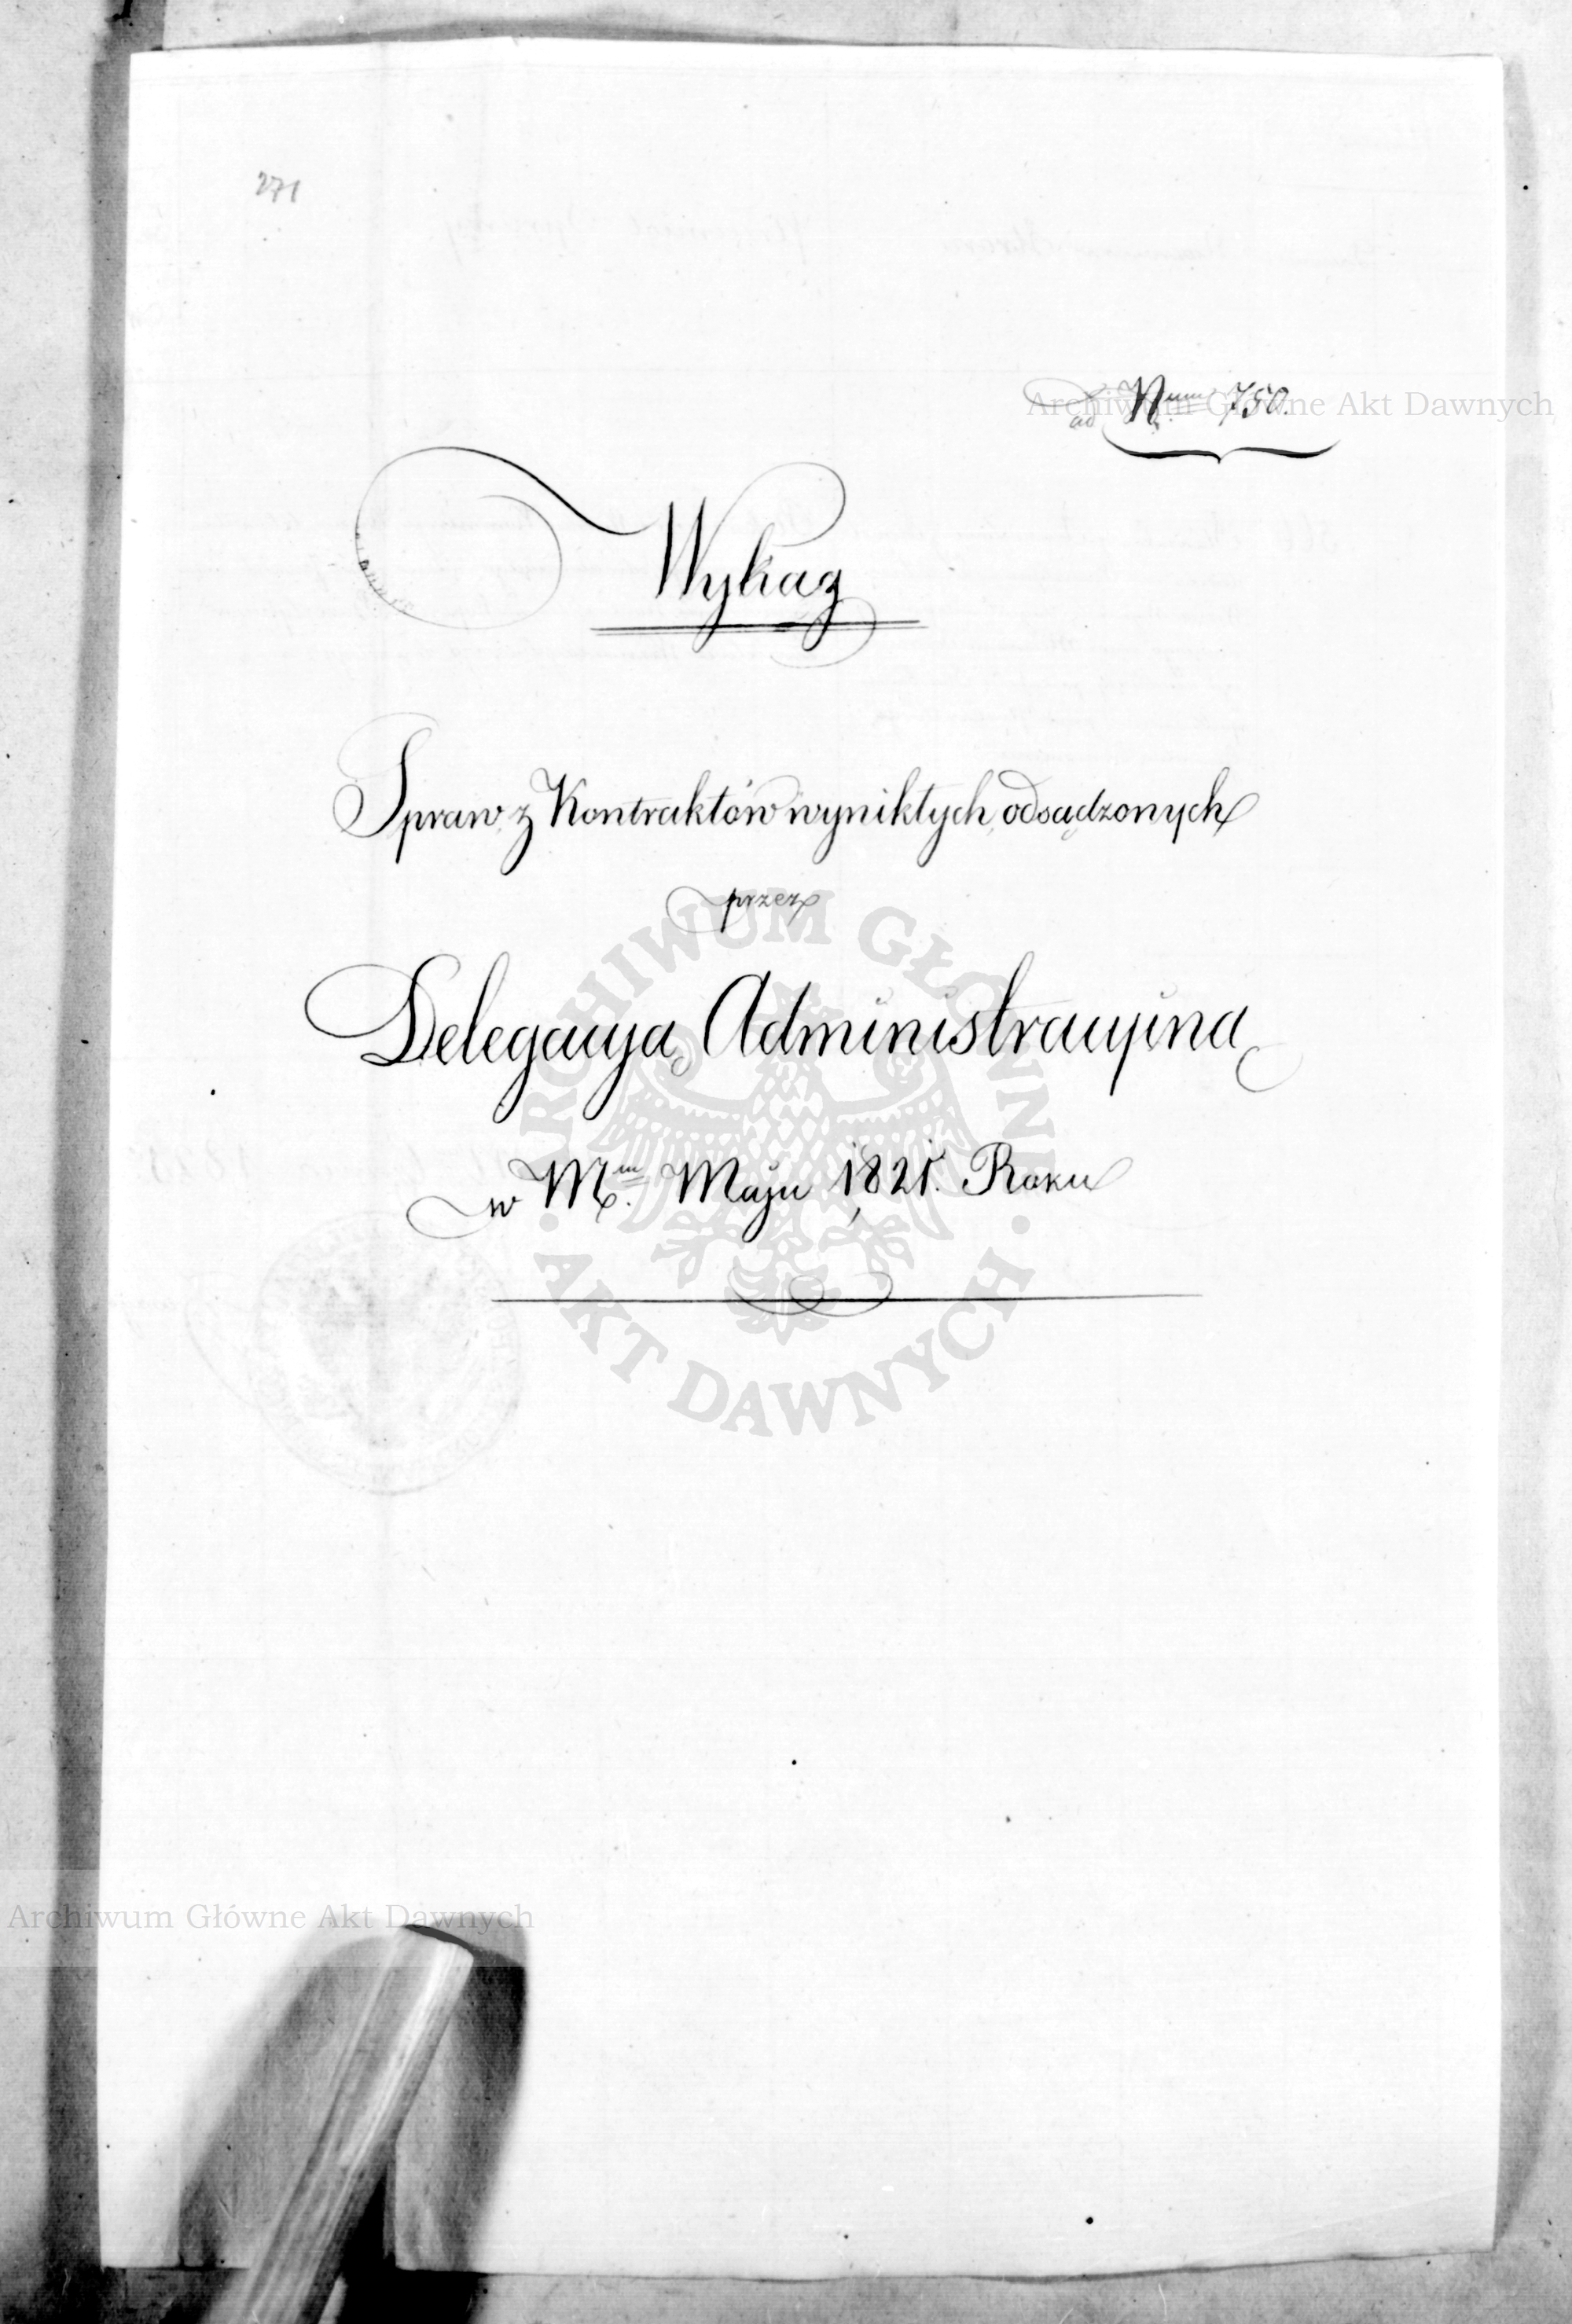 271
Archiwum Główne Akt Dawnych
ad Nrum 750.
Wykaz
Spraw z Kontraktów wynikłych, odsądzonych
przez
Delegacyą Administracyiną
w Mcu. Maju 1821. Roku
ARCHIWUM GŁÓWNE
AKT DAWNYCH
Archiwum Główne Akt Dawnych